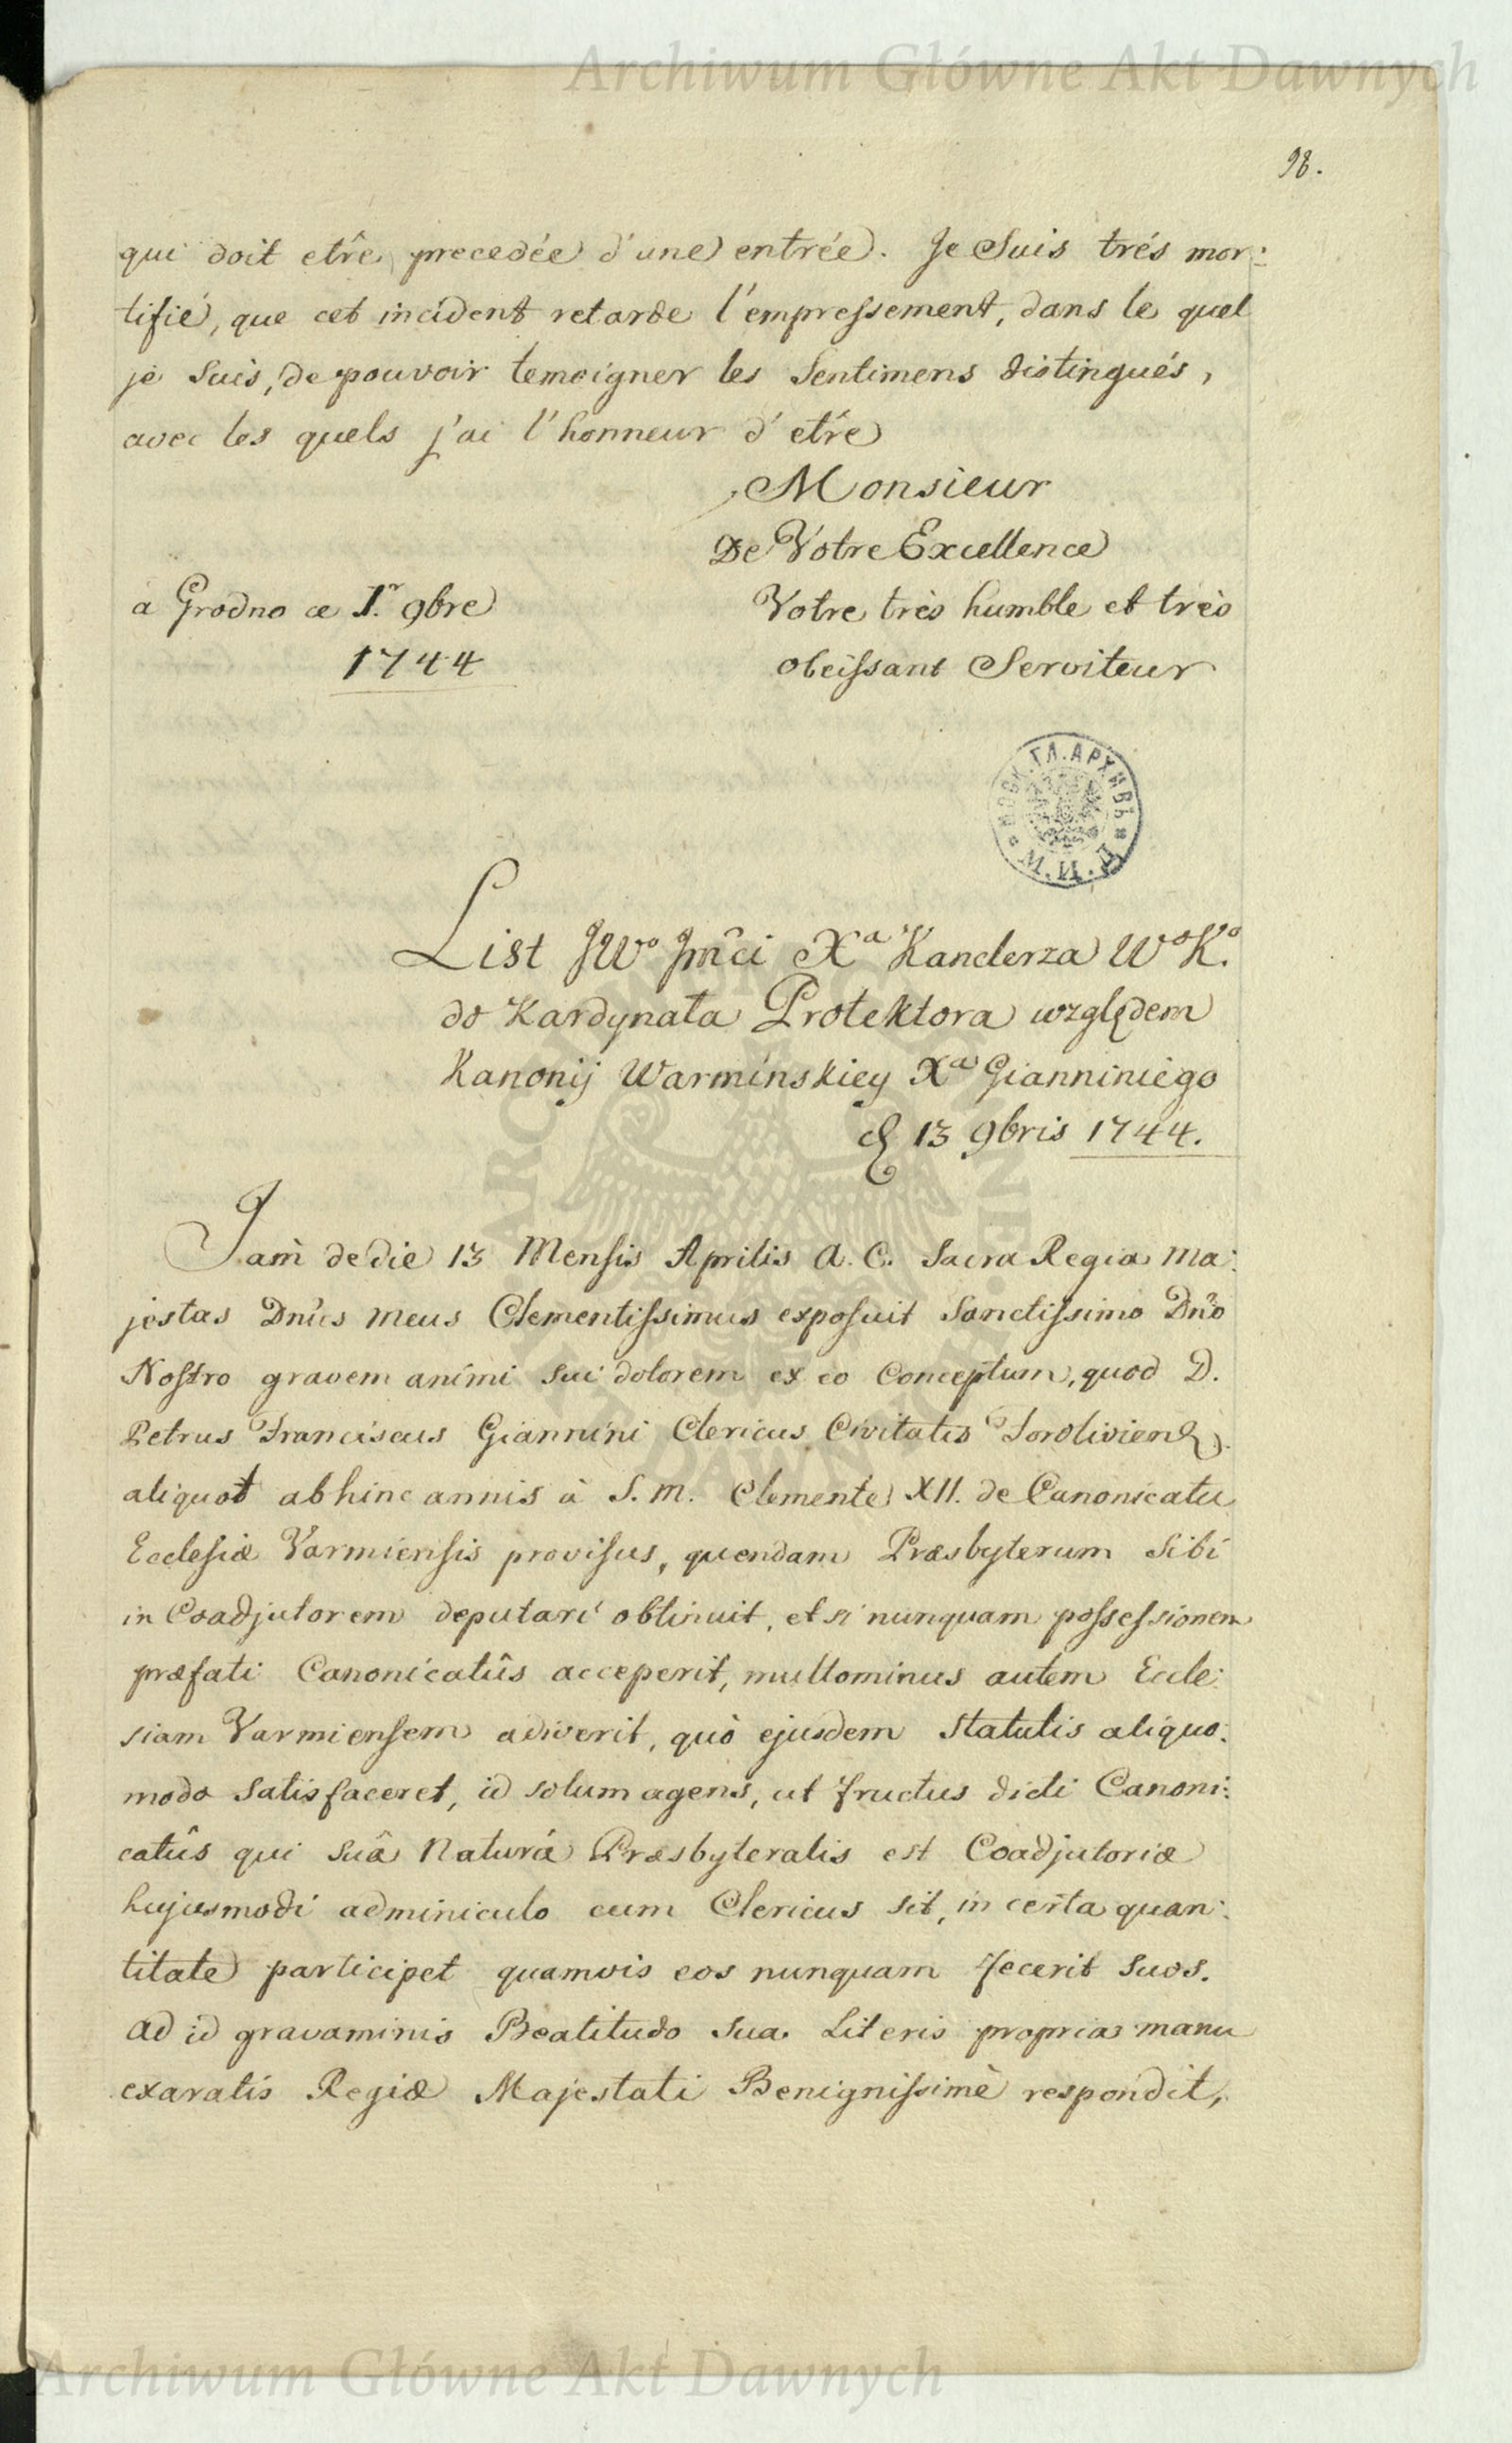 Archiwum Główne Akt Dawnych
98.
qui doit etŕe precedée d'une entrée. Je Suis trés mor:
tifié, que cet incident retarde l'empressement, dans le quel
je suis, de pouvoir temoigner les Sentimens distingués,
avec les quels j'ai l'honneur d'etŕe
Monsieur
De Votre Excellence
a Grodno ce 1.r 9bre
1744
Votre très humble et très
obeissant Serviteur
МОСК. ГЛ. АРХИВЪ
М. И. Д.
List JWo Jmci Xa Kanclerza Wo Ko.
do Kardynała Protektora względem
Kanonij Warminskiey Xa Gianniniego
d 13 9bris 1744.
Jam de die 13 Mensis Aprilis A. C. Sacra Regia Ma:
jestas Dnus meus Clementissimus exposuit Sanctissimo Dno
Nostro gravem animi sui dolorem ex eo Conceptum, quod D.
Petrus Franciscus Giannini Clericus Civitatis Foroliviens.
aliquot abhinc annis à S. M. Clemente XII. de Canonicatu
Ecclesiæ Varmiensis provisus, quendam Præsbyterum sibi
in Coadjutorem deputari obtinuit, etsi nunquam possessionem
præfati Canonicatûs acceperit, multominus autem Eccle:
siam Varmiensem adiverit, quò ejusdem Statutis aliquo:
modo satisfaceret, id solum agens, ut fructus dicti Canoni:
catûs qui suâ Naturâ Præsbyteralis est Coadjutoriæ
hujusmodi adminiculo cum Clericus sit, in certa quan:
titate participet quamvis eos nunquam fecerit suos.
Ad id gravaminis Beatitudo sua Literis propria manu
exaratis Regiæ Majestati Benignissimè respondit,
Archiwum Główne Akt Dawnych